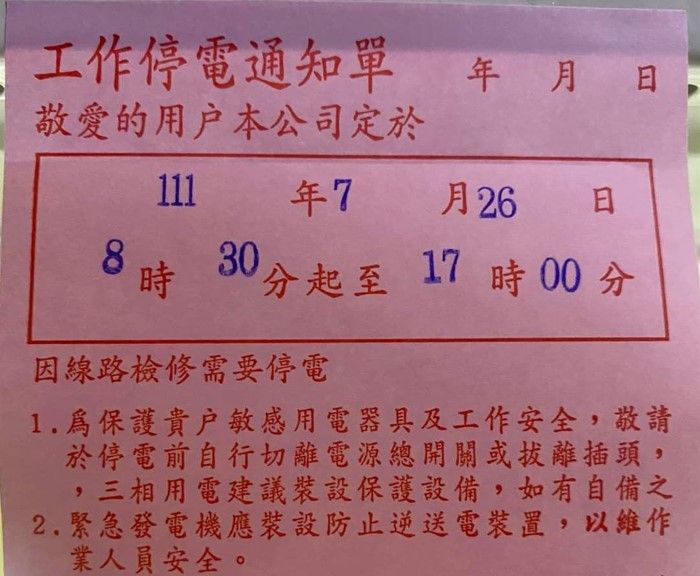 工作停電通知單 年 月 日
敬愛的用户本公司定於
111 年7 月26 日
8時 30分起至 17 時 00 分
因線路檢修需要停電
1.為保護貴户敏感用電器具及工作安全，敬請
於停電前自行切離電源總開關或拔離插頭，
，三相用電建議裝設保護設備，如有自備之
2.緊急發電機應裝設防止逆送電裝置，以維作
業人員安全。